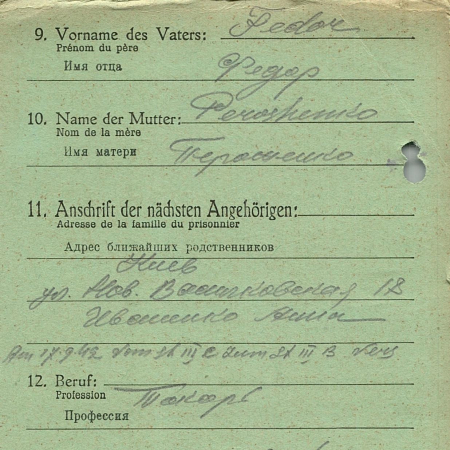 9. Vorname des Vaters: Fedor
Prénom du père
Имя отца Федор
10. Name der Mutter: Peroshenko
Nom de la mère
Имя матери Терошенко
11. Anschrift der nächsten Angehörigen:
Adresse de la famille du prisonnier
Адрес ближайших родственников
Киев
ул. Нов. Васильковская 18
Иващенко Анна
Am 17.9.42 vom St III C zum St III B Vers
12. Beruf:
Profession Токарь
Профессия